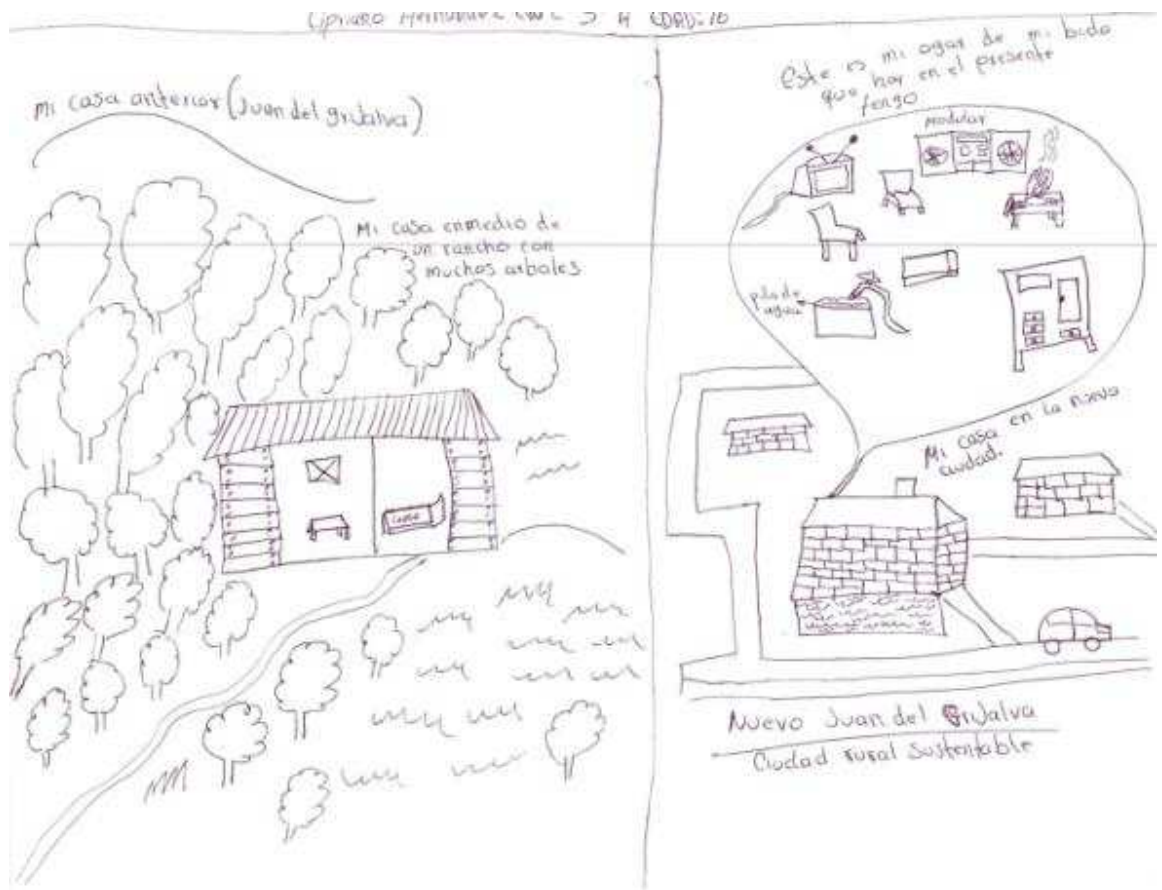 Cipriano 3° A EDAD: 16
Mi casa anterior (Juan del grijalva)
Mi casa enmedio de
un rancho con
muchos arboles
cama
Este es mi ogar de mi bida
que hay en el presente
tengo
modular
pila de
agua
Mi casa en la nueva
ciudad.
Nuevo Juan del Grijalva
Ciudad rural Sustentable